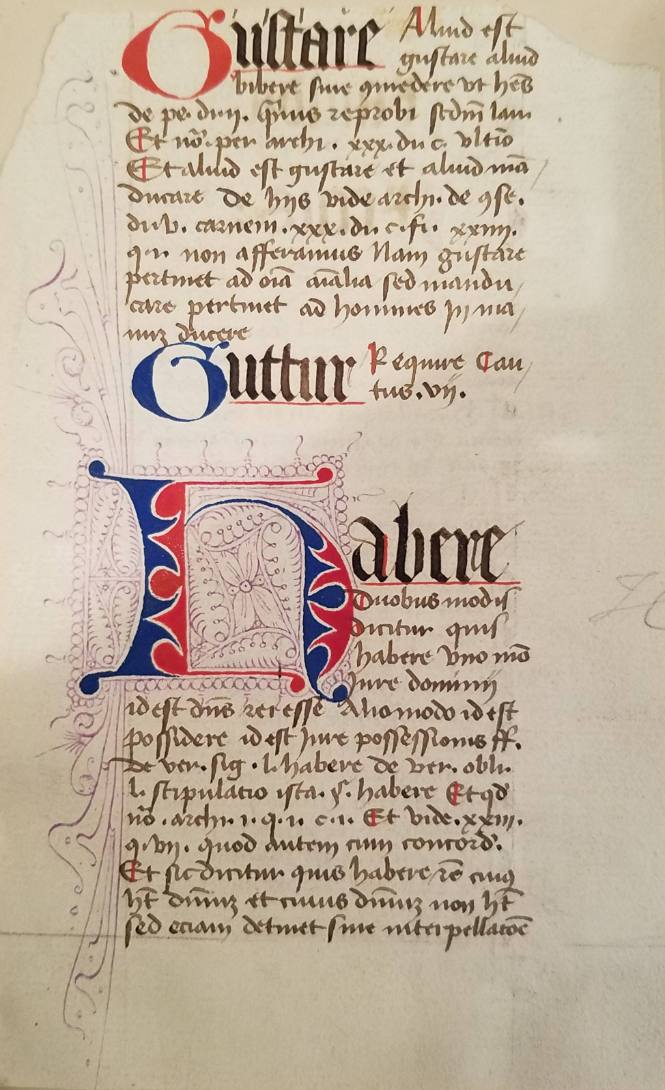 Gustare Aliud est
gustare aliud
bibere siue comedere vt hēs
de pe. di. ij. Quiuis reprobi scdm̄ lau
Et nō. per archi. xxx. di. c. vltīo
Et aliud est gustare et aliud mā
ducare De hijs vide archi. de ꝯse.
di. v. carnem. xxx. di. c. fi. xxiiij.
q. i. non afferamus Nam gustare
pertinet ad oīa aīalia sed mandu
care pertinet ad homines In ma
nuꝫ ducere
Guttur Require Cau
tus. vij.
Habere
Duobus modis
dicitur quis
habere vno mō
Jure dominij
id est dn̄s rei esse Alio modo id est
possidere id est Jure possessionis ff.
de ver. sig. l. habere de ver. obli.
l. stipulacio ista. §. habere Et qđ
nō. archi. i. q. i. c. i. Et vide. xxiij.
q. vij. quod autem cum concord'.
Et sic dicitur quis habere rē cuiꝰ
hēt dn̄iuꝫ et cuius dn̄iuꝫ non hēt
sed eciam detinet sine interpellacōe